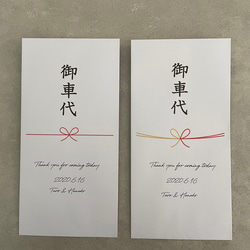 御車代
Thank you for coming today
2020.6.16
Taro & Hanako
御車代
Thank you for coming today
2020.6.16
Taro & Hanako